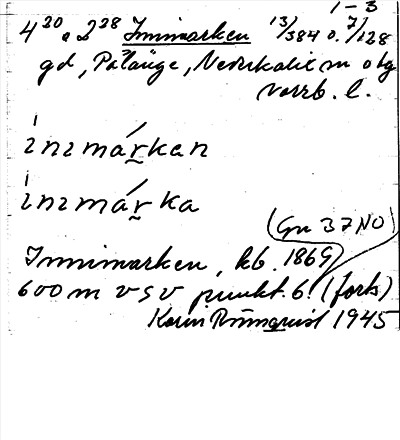 1 – 3
4²⁰ o 2²⁸ Innimarken 13/384 o. 7/128
gd, Palänge, Nederkalix sn o bg
Norrb. l.
ini márkan
ini márka
(Gn 37 NO)
Innimarken, kb. 1869
600 m v s v punkt. 6. (forts)
Karin Rönnquist 1945